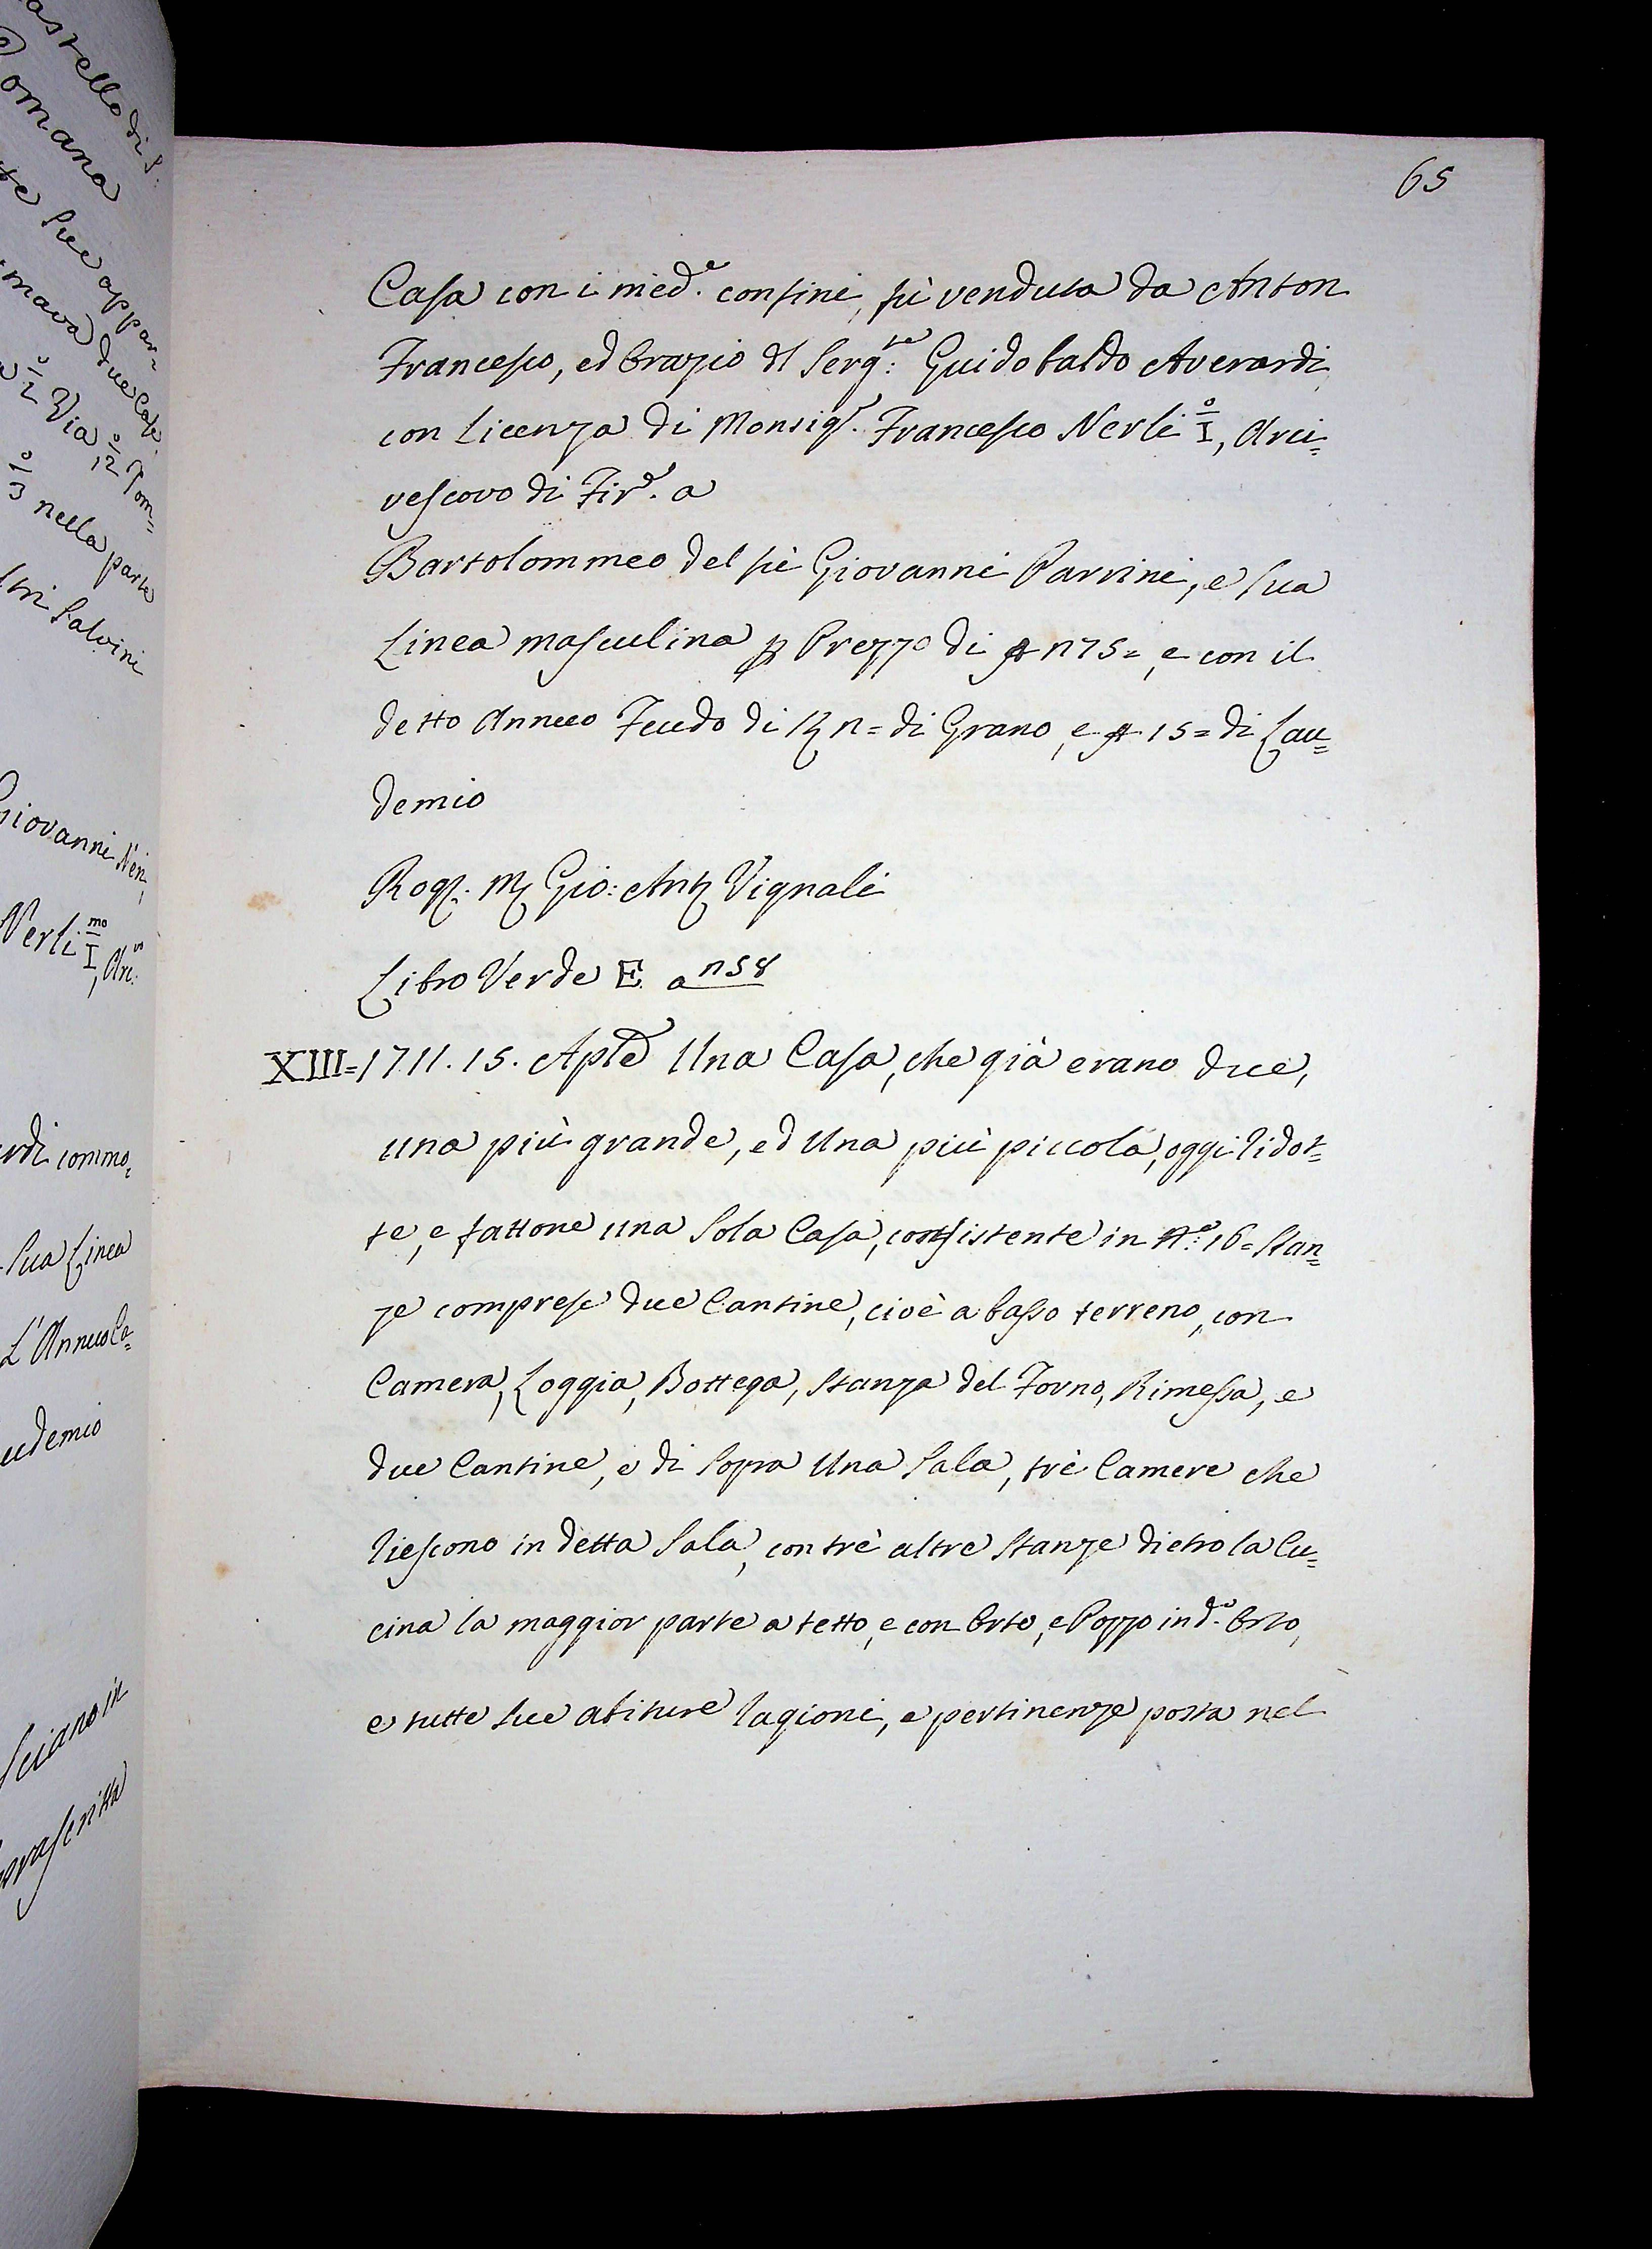 65
Casa con i med.e confini, fù venduta da Anton
Francesco, ed Orazio dl Serg.te Guidobaldo Averardi
con Licenza di Monsig.r Francesco Nerli I.o, Arci=
vescovo di Fir.e a
Bartolommeo del fù Giovanni Parrini, e sua
Linea masculina p Prezzo di 175=, e con il
detto Annuo Feudo di n= di Grano, e 15= di Lau=
demio
Rog. M Gio: Ant Vignali
Libro Verde E. a 158
XIII= 1711. 15. Aple Una Casa, che già erano due,
una più grande, ed Una più piccola, oggi ridot=
te, e fattone una Sola Casa, consistente in N.o 16= Stan=
ze comprese due Cantine, cioè a basso terreno, con
Camera, Loggia, Bottega, Stanza del Forno, Rimessa, e
due Cantine, e di Sopra Una Sala, trè Camere che
riescono in detta Sala, con trè altre Stanze dietro la Cu=
cina la maggior parte a tetto, e con Orto, e Pozzo in d.o Orto,
e tutte sue abiture ragioni, e pertinenze posta nel
astello di S.
Romana
te sue appar=
mava due Case
Via,
nella parte
tri Salvini
Giovanni Neri,
Nerli I.mo, Arc.
ardi commo,
Sua Linea
L'Annuo Ca=
udemio
sciano in
oprascritta